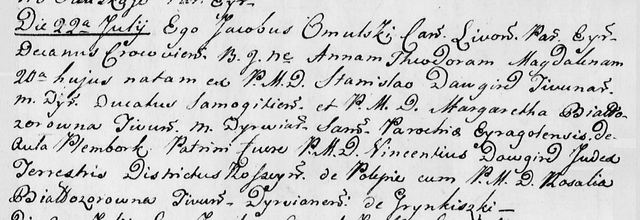 Die 22a Julij Ego Jacobus Omulski Can. Livon. Par. Eyr.
Decanus Crocovien. B. I. ne Annam Theodoram Magdalenam
20a hujus natam ex P. M. D. Stanislao Dawgird Tivunar.
m. Dyr. Ducatus Samogitien. et P. M. D. Margaretha Białło
zorowna Tivun. m. Dyrwian. Sam. Parochiæ Eyragolensis de
Aula Plembork. Patrini fuere P. M. D. Vincentius Dawgird Judex
Terrestris Districtus Rossyen. de Polepie cum P. M. D. Rosalia
Białłozorowna Tivun. Dyrvianen. de Grynkiszki —